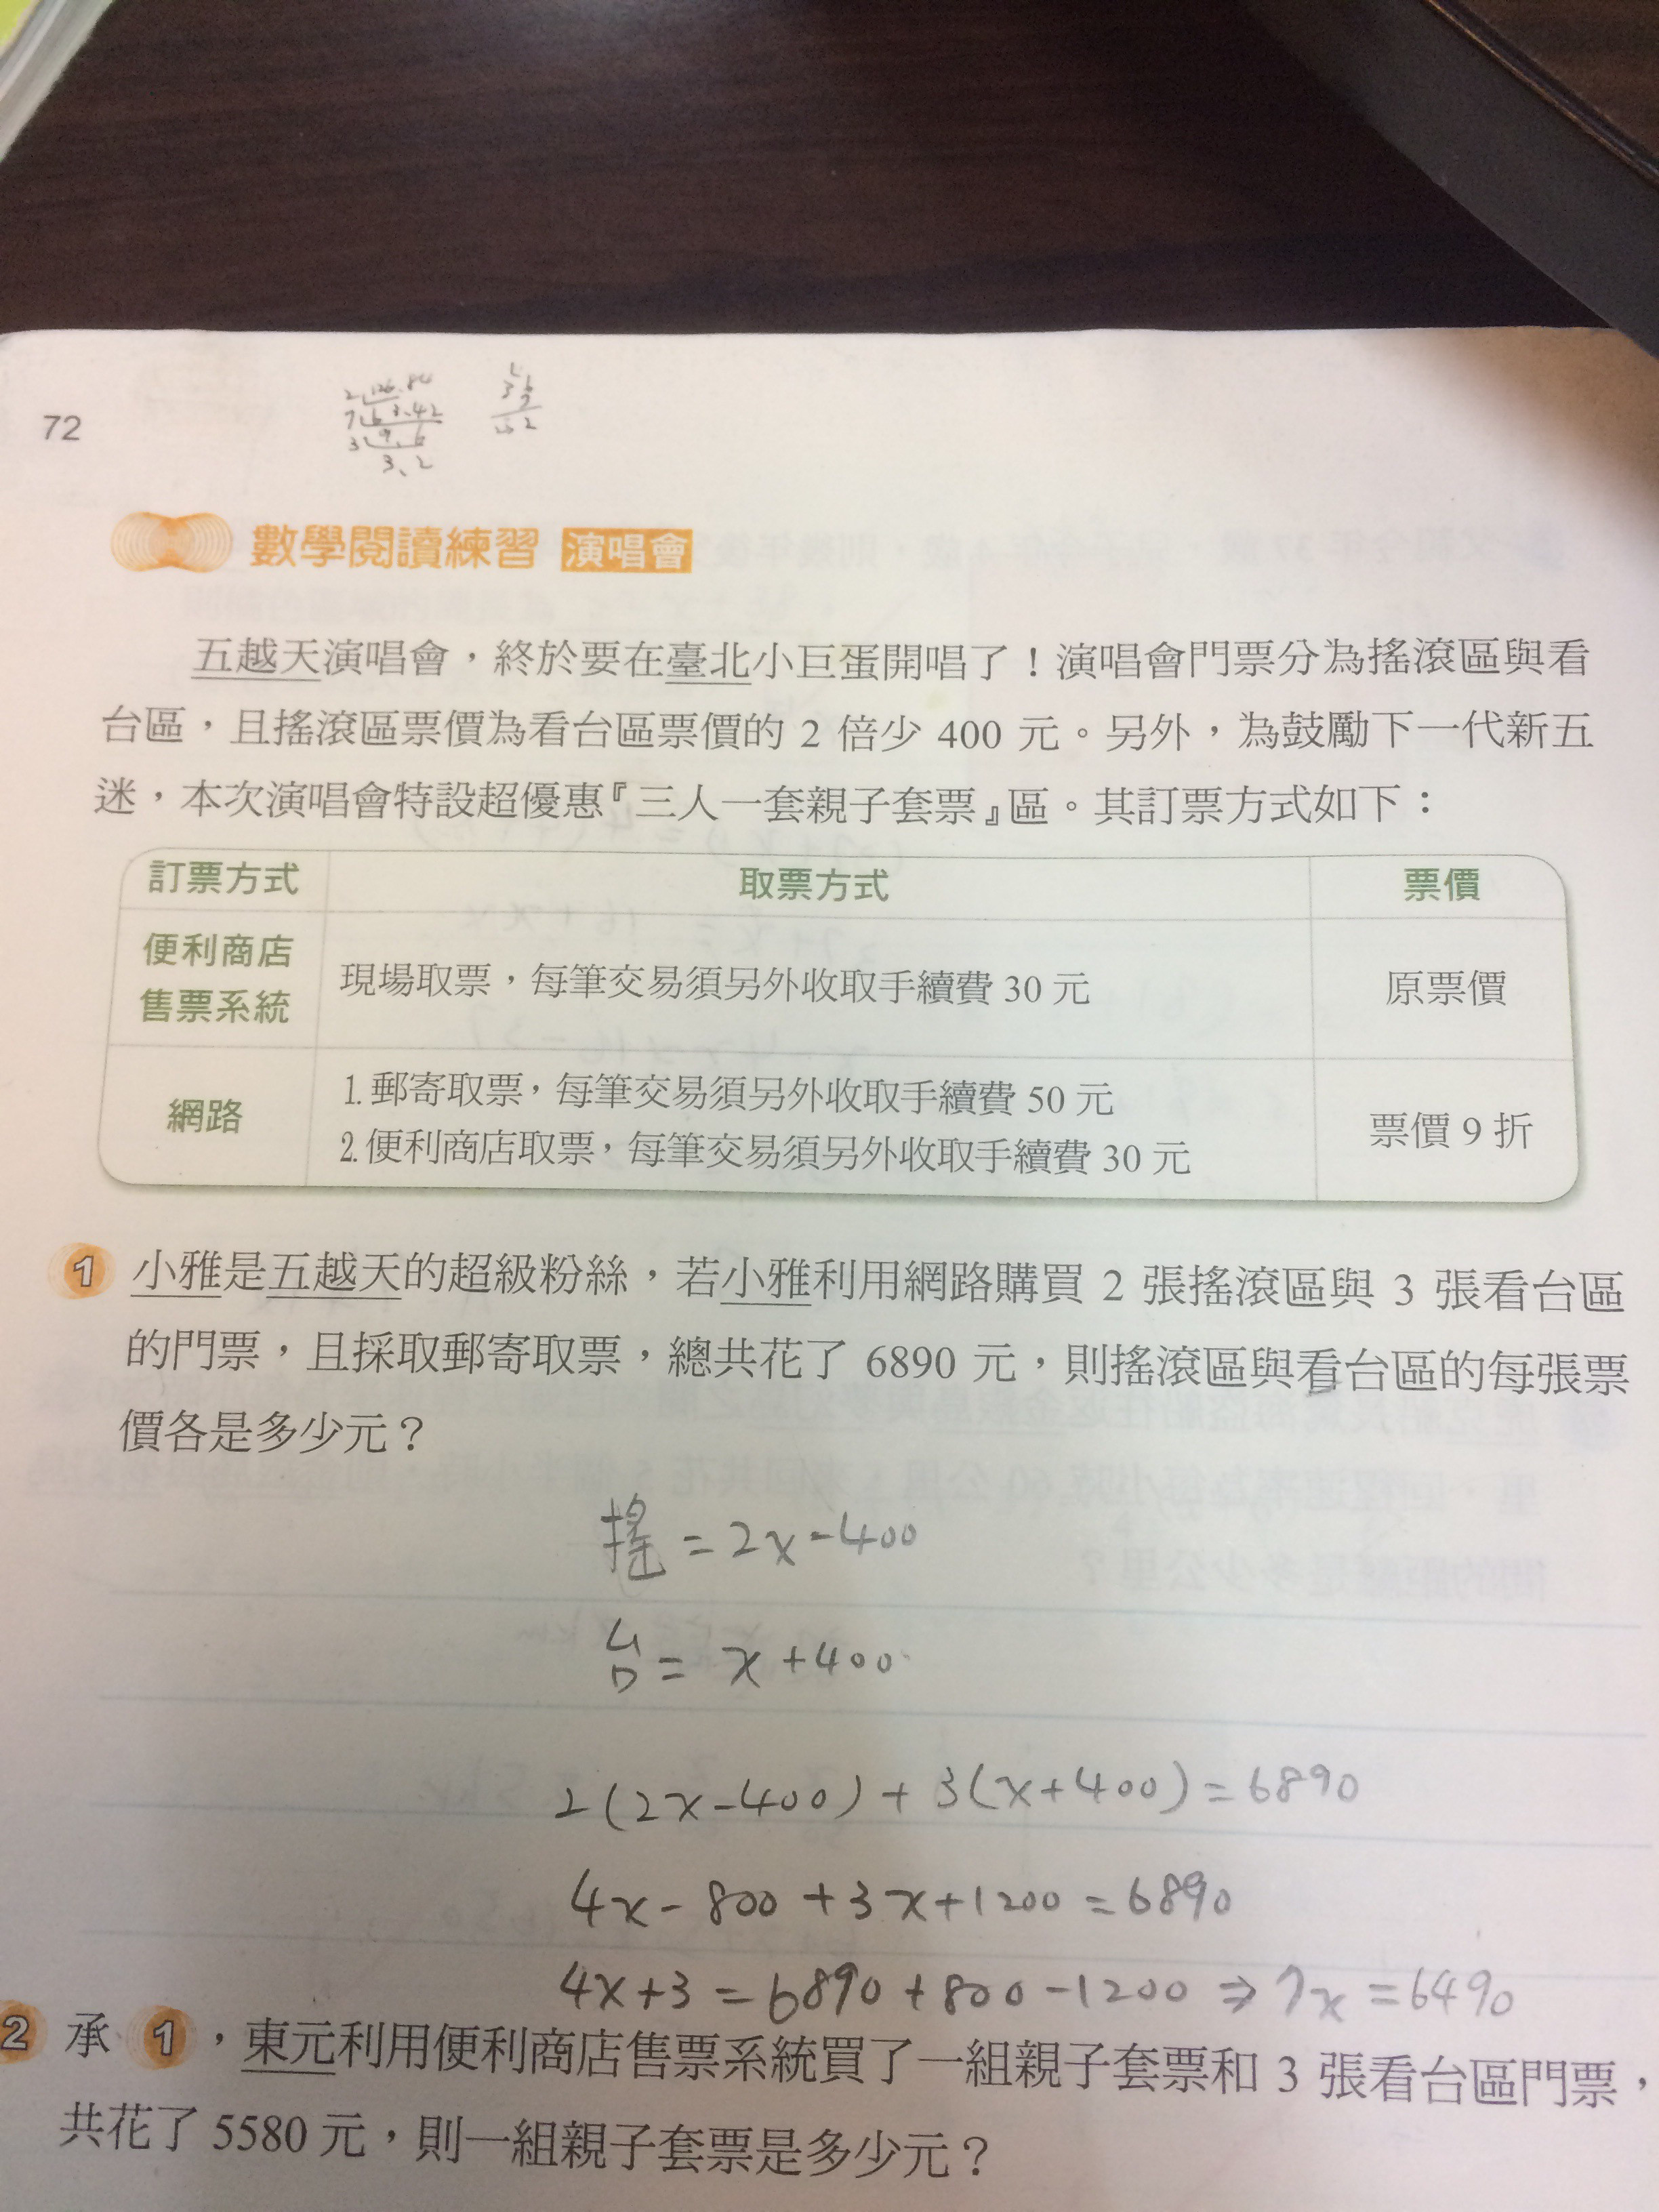 72
數學閱讀練習 演唱會
五越天演唱會，終於要在臺北小巨蛋開唱了！演唱會門票分為搖滾區與看
台區，且搖滾區票價為看台區票價的 2 倍少 400 元。另外，為鼓勵下一代新五
迷，本次演唱會特設超優惠『三人一套親子套票』區。其訂票方式如下：
訂票方式 取票方式 票價
便利商店
售票系統
現場取票，每筆交易須另外收取手續費 30 元
原票價
網路
1. 郵寄取票，每筆交易須另外收取手續費 50 元
2. 便利商店取票，每筆交易須另外收取手續費 30 元
票價 9 折
1 小雅是五越天的超級粉絲，若小雅利用網路購買 2 張搖滾區與 3 張看台區
的門票，且採取郵寄取票，總共花了 6890 元，則搖滾區與看台區的每張票
價各是多少元？
搖 = 2x-400
ㄎㄢ = x+400
2(2x-400)+3(x+400)=6890
4x-800+3x+1200=6890
4x+3=6890+800-1200⇒7x=6490
2 承 1，東元利用便利商店售票系統買了一組親子套票和 3 張看台區門票，
共花了 5580 元，則一組親子套票是多少元？